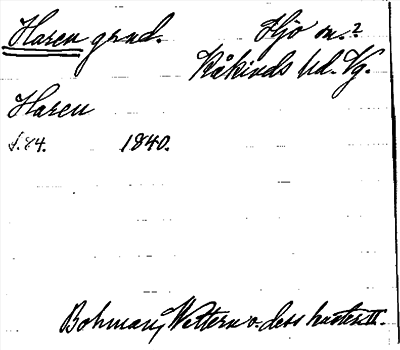 Haren grund. Hjo sn.?
Kåkinds hd. Vg.
Haren
s. 84. 1840.
Bohman, Wettern o. dess kuster II.